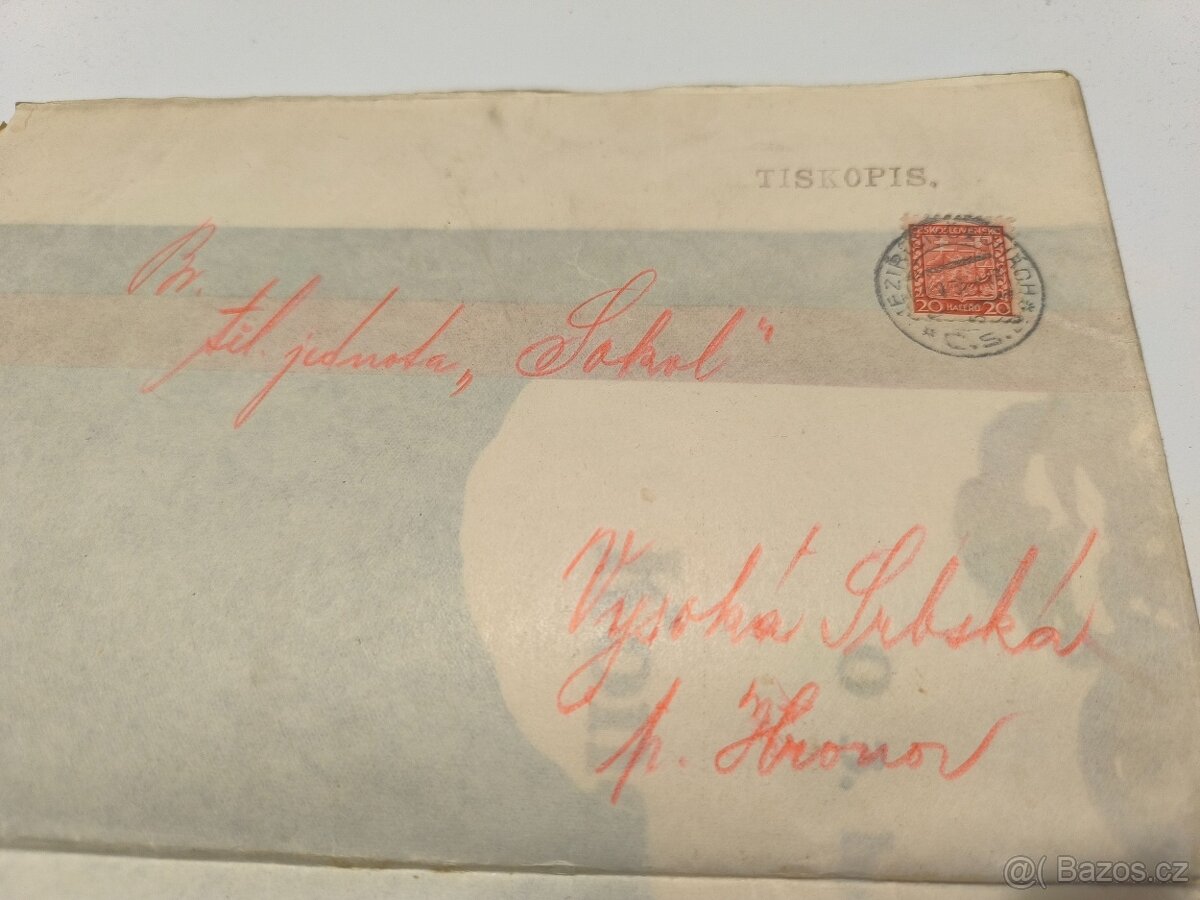 TISKOPIS.
ČESKOSLOVENSKO
20 HALÉŘŮ 20
* Č.S. *
Br.
těl. jednota „Sokol“
Vysoká Srbská
p. Hronov
@( Bazos.cz